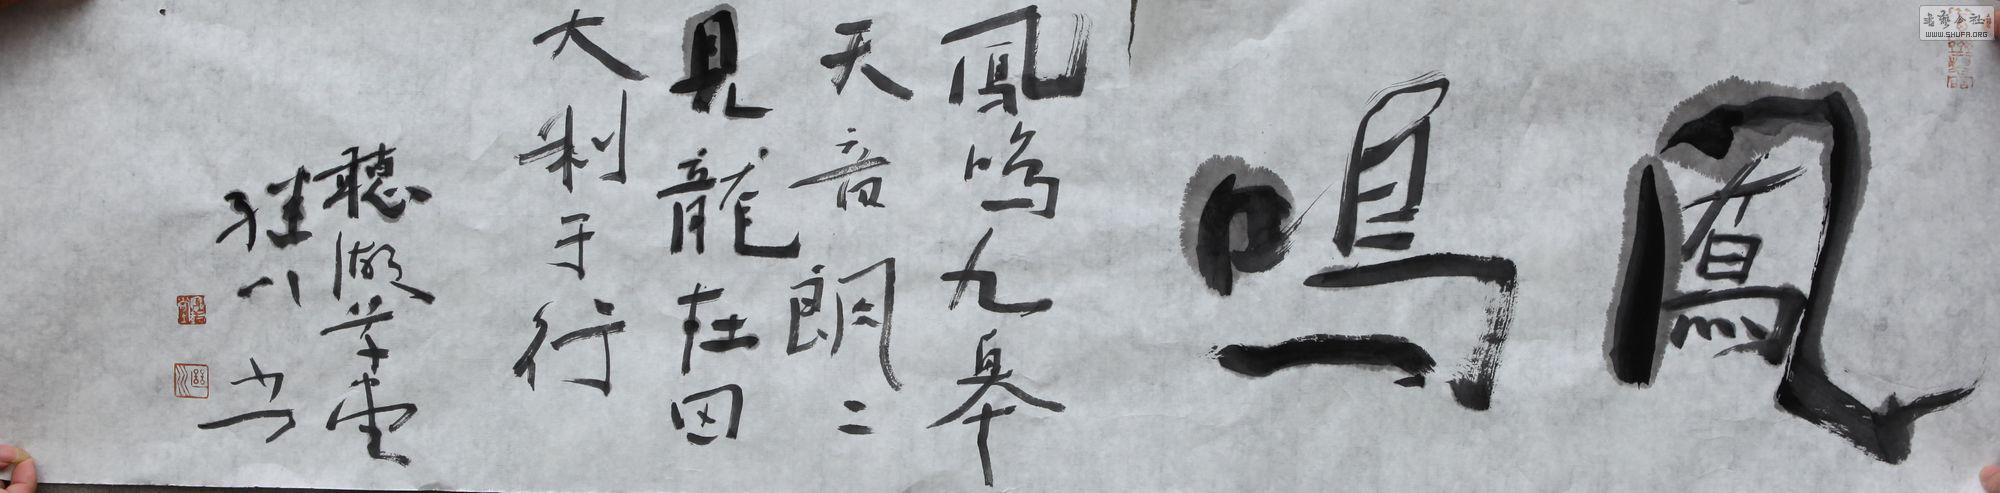 鳳鳴
鳳鳴九皋
天音朗二
見龍在田
大利于行
聽湖草堂
繼川書
書藝公社
WWW.SHUFA.ORG